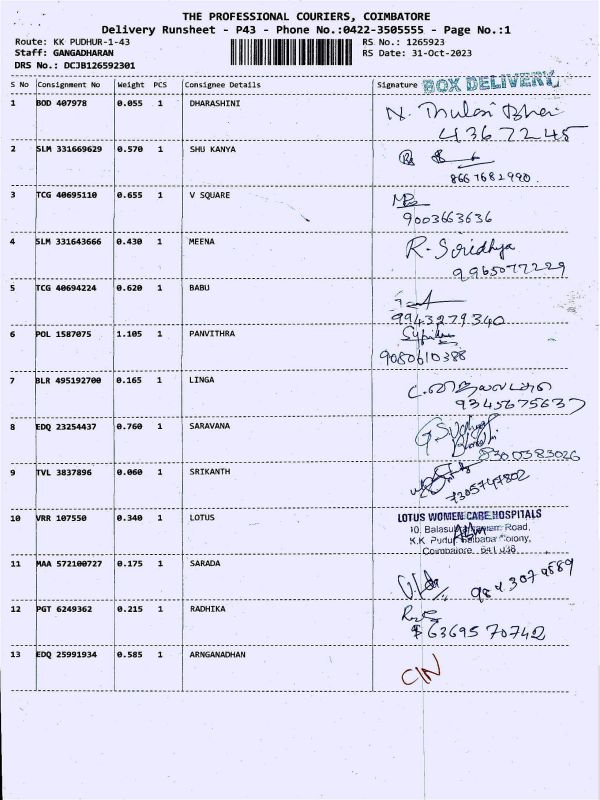 THE PROFESSIONAL COURIERS, COIMBATORE
Delivery Runsheet - P43 - Phone No.:0422-3505555 - Page No.:1
Route: KK PUDHUR-1-43
RS No.: 1265923
Staff: GANGADHARAN
RS Date: 31-Oct-2023
DRS No.: DCJB126592301
S No Consignment No Weight PCS Consignee Details Signature BOX DELIVERY
1 BOD 407978 0.055 1 DHARASHINI N. Thulasi Bhai
2 SLM 331669629 0.570 1 SHU KANYA
8667682990.
3 TCG 40695110 0.655 1 V SQUARE
9003663636
4 SLM 331643666 0.430 1 MEENA R. Sridhya
9965077229
5 TCG 40694224 0.620 1 BABU
9943279340
6 POL 1587075 1.105 1 PANVITHRA
9080610388
7 BLR 495192700 0.165 1 LINGA
9345675637
8 EDQ 23254437 0.760 1 SARAVANA
8300383026
9 TVL 3837896 0.060 1 SRIKANTH
7305747802
10 VRR 107550 0.340 1 LOTUS LOTUS WOMEN CARE HOSPITALS
Road,
K.K. Pudur, Colony,
Coimbatore,
11 MAA 572100727 0.175 1 SARADA
12 PGT 6249362 0.215 1 RADHIKA
6369570742
13 EDQ 25991934 0.585 1 ARNGANADHAN CIN